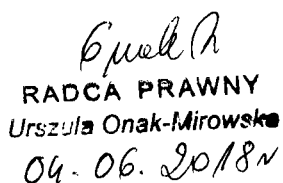 RADCA PRAWNY
Urszula Onak-Mirowska
04. 06. 2018r